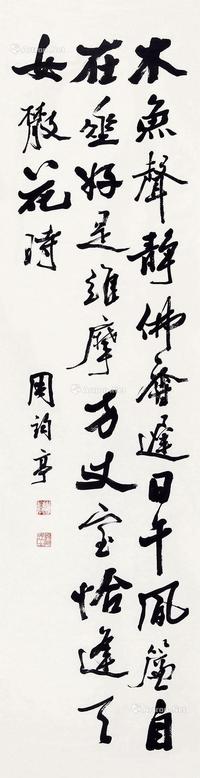 木魚聲靜佛香遲日午風簾自
在垂好是維摩方丈室恰逢天
女散花時
周亭